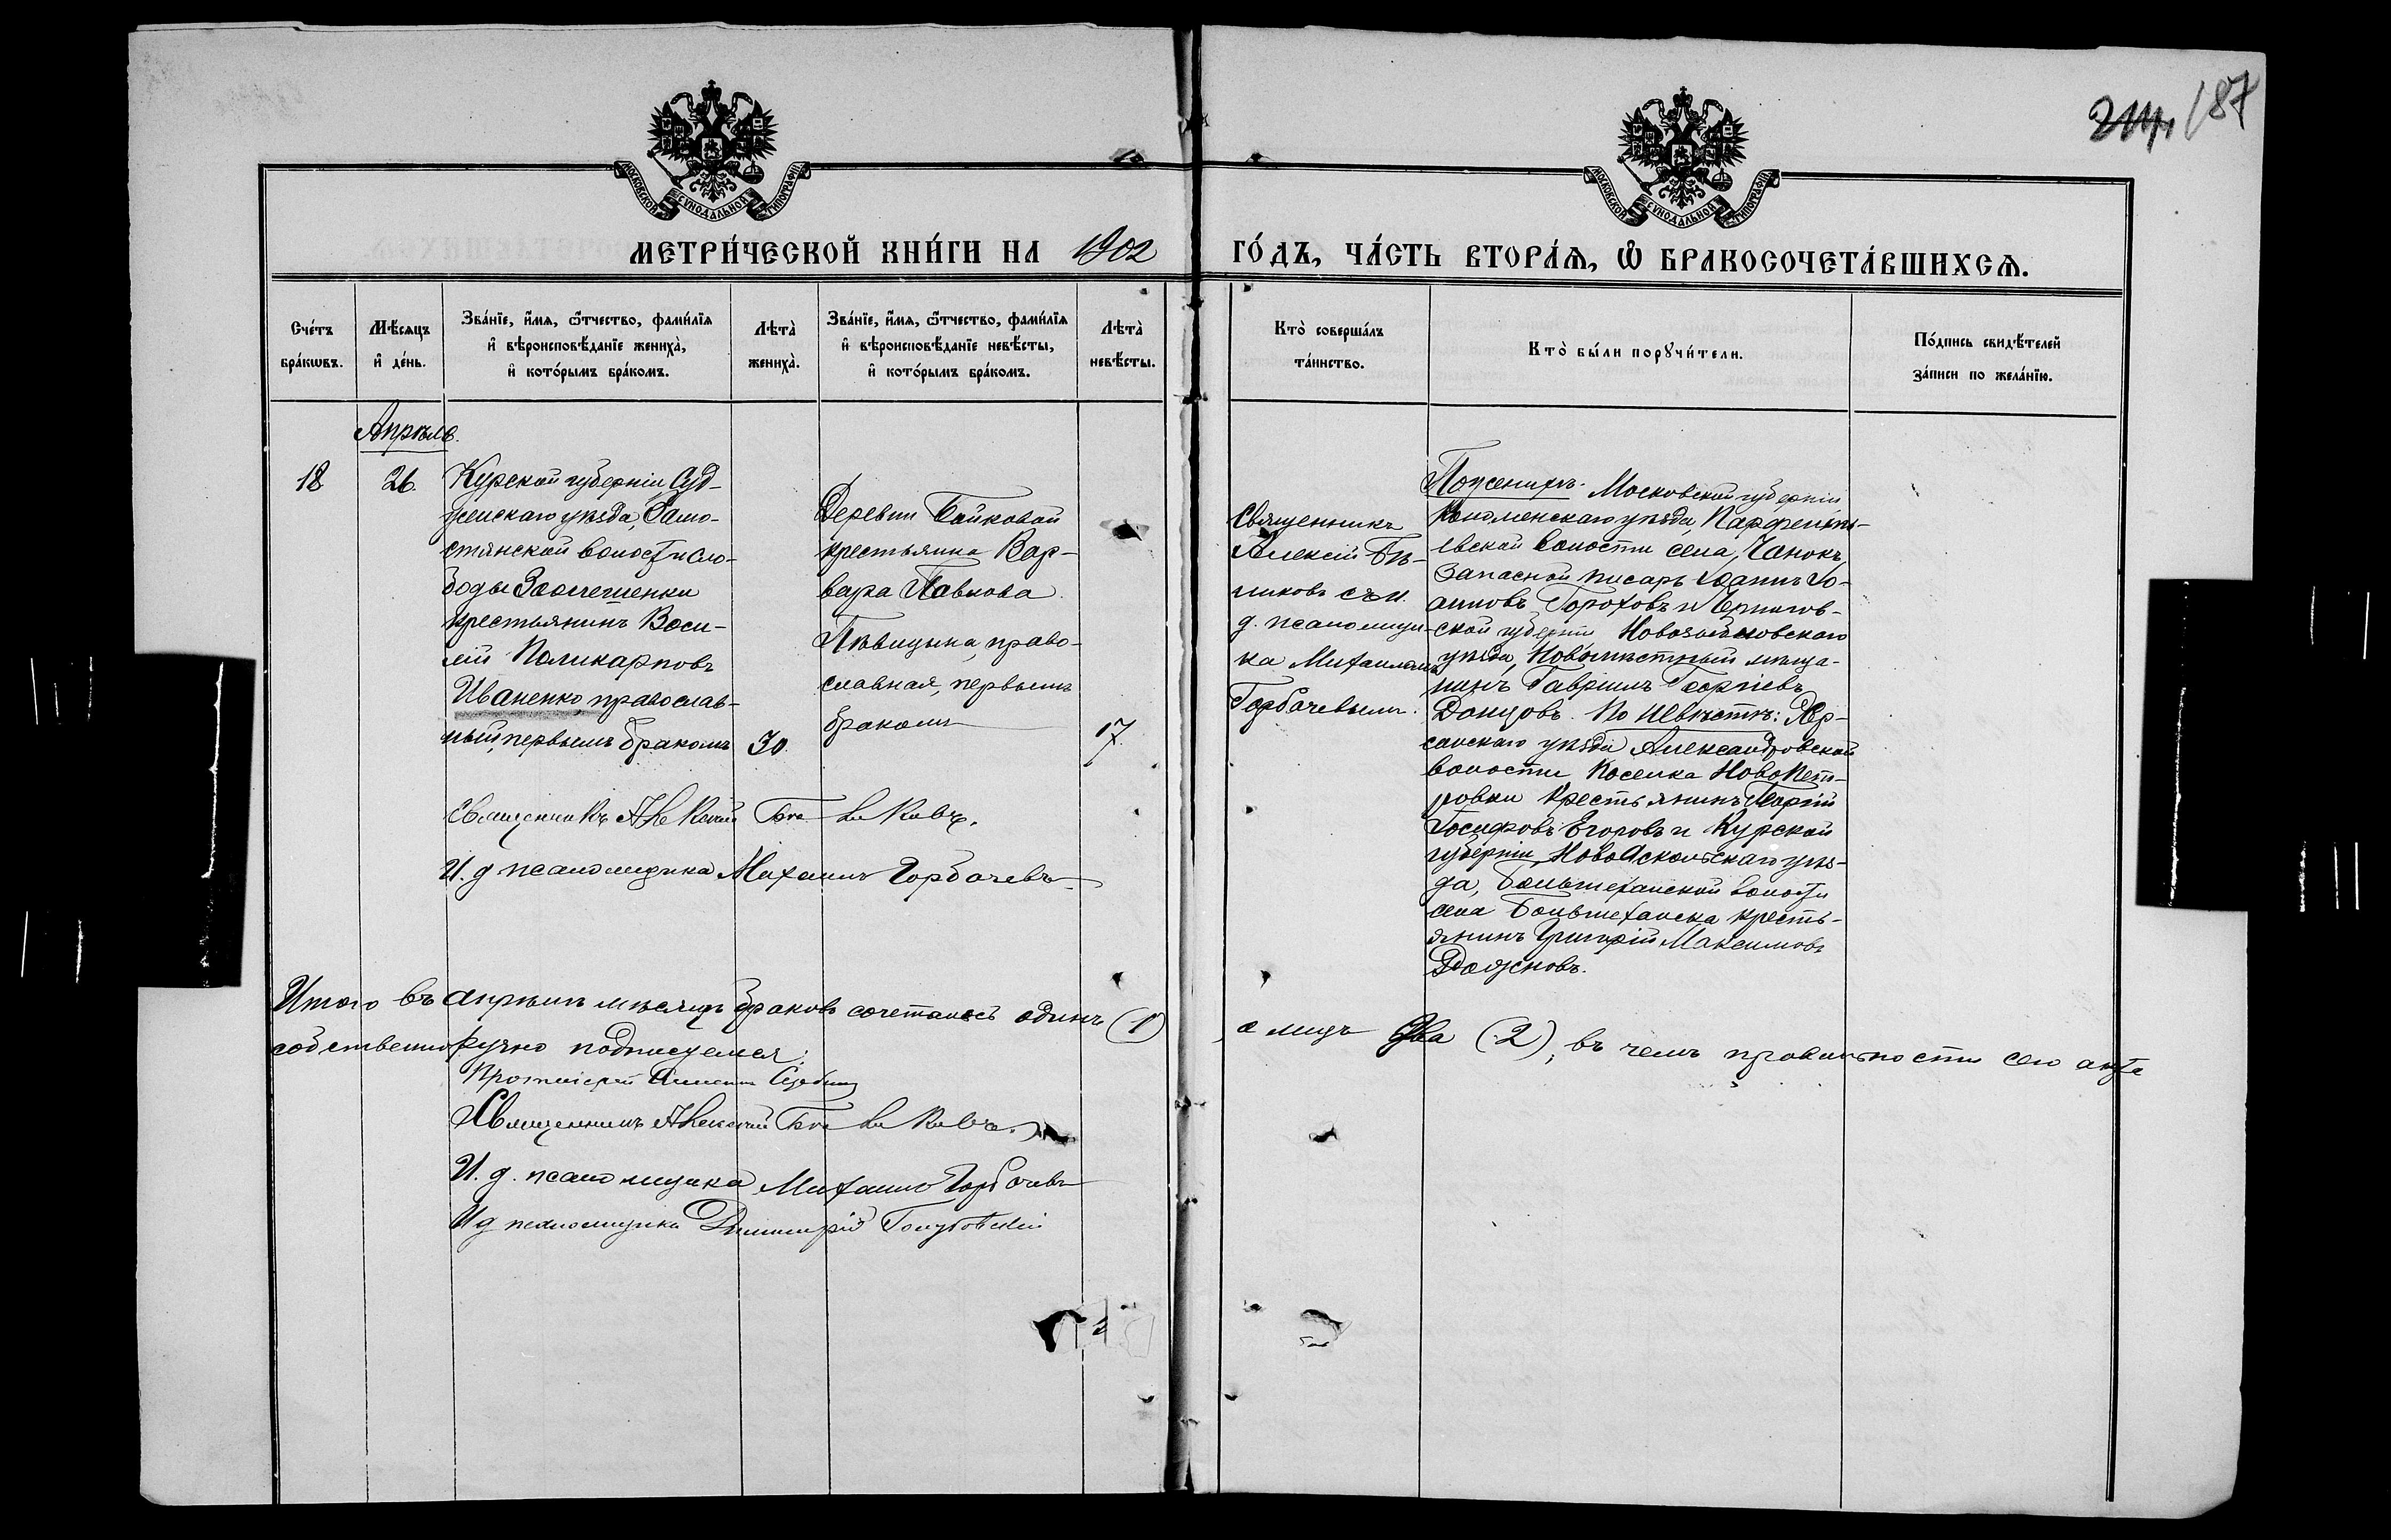 187
МОСКОВСКОЙ СУНОДАЛЬНОЙ ТИПОГРАФІИ
МОСКОВСКОЙ СУНОДАЛЬНОЙ ТИПОГРАФІИ
МЕТРИ́ЧЕСКОЙ КНИ́ГИ НА 1902 ГО́ДЪ, ЧА́СТЬ ВТОРА́Ѧ, Ѡ҆ БРАКОСОЧЕТА́ВШИХСѦ.
Сче́тъ
бра́кѡвъ.
Мѣ́сяцъ
и҆ де́нь.
Зва́нїе, и҆́мѧ, ѻ҆́тчество, фами́лїѧ
и҆ вѣроисповѣ́данїе жениха̀,
и҆ кото́рымъ бра́комъ.
Лѣта̀
жениха̀.
Зва́нїе, и҆́мѧ, ѻ҆́тчество, фами́лїѧ
и҆ вѣроисповѣ́данїе невѣ́сты,
и҆ кото́рымъ бра́комъ.
Лѣта̀
невѣ́сты.
Кто̀ соверша́лъ
та́инство.
Кто̀ бы́ли порꙋчи́тели.
По́дпись свидѣ́телей
за́писи по жела́нїю.
Апрѣль.
18
26.
Курской губерніи Суд-
женскаго уѣзда, Замо-
стянской волости сло-
боды Заолешенки
крестьянинъ Васи-
лій Поликарповъ
Иваненко, православ-
ный, первымъ бракомъ
30.
Деревни Байковой
крестьянка Вар-
вара Павлова
Пѣвицына, право-
славная, первымъ
бракомъ
17.
Священникъ
Алексій Бѣ-
ликовъ съ и.
д. псаломщи-
ка Михаиломъ
Горбачевымъ.
По женихѣ: Московской губерніи
Коломенскаго уѣзда, Парфентьевской волости села Чанокъ,
запасной писарь Іоаннъ Іо-
анновъ Гороховъ и Чернигов-
ской губерніи Новозыбковскаго
уѣзда, Новомѣстный мѣща-
нинъ Гавріилъ Георгіевъ
Донцовъ. По невѣстѣ: Хер-
сонскаго уѣзда Александровской
волости, поселка Новопет-
ровки крестьянинъ Георгій
Іосифовъ Егоровъ и Курской
губерніи, Новооскольскаго уѣз-
да, Большеханской волости
села Большеханска кресть-
янинъ Григорій Максимовъ
Священникъ Алексій Бѣликовъ.
И. д. псаломщика Михаилъ Горбачевъ
Итого въ апрѣлѣ мѣсяцѣ браковъ сочеталось одинъ (1), а лицъ два (2), въ чемъ правильности сего акта
собственноручно подписуемся:
Протоіерей
Священникъ Алексій Бѣликовъ.
И. д. псаломщика Михаилъ Горбачевъ
И д псаломщика Димитрій Голубовскій